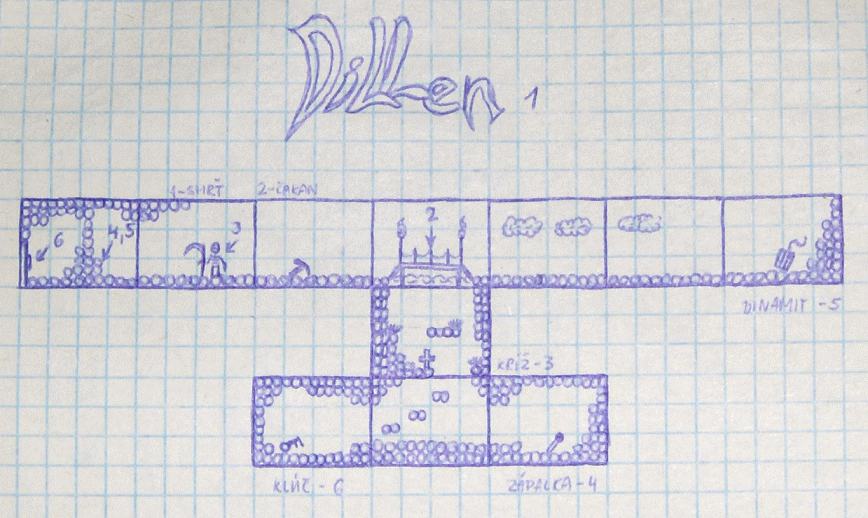 Dillen 1
1-SMRŤ 2-ČAKAN
6 4,5 3 2
DINAMIT-5
KŘÍŽ-3
KLÍČ-6 ZÁPALKA-4